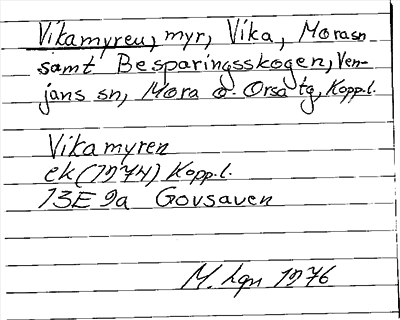 Vikamyren, myr, Vika, Morasn
samt Besparingsskogen, Ven-
jans sn, Mora o. Orsa tg, Kopp.l.
Vikamyren
ek (1974) Kopp.l.
13E 9a Govsaven
M. Lgn 1976